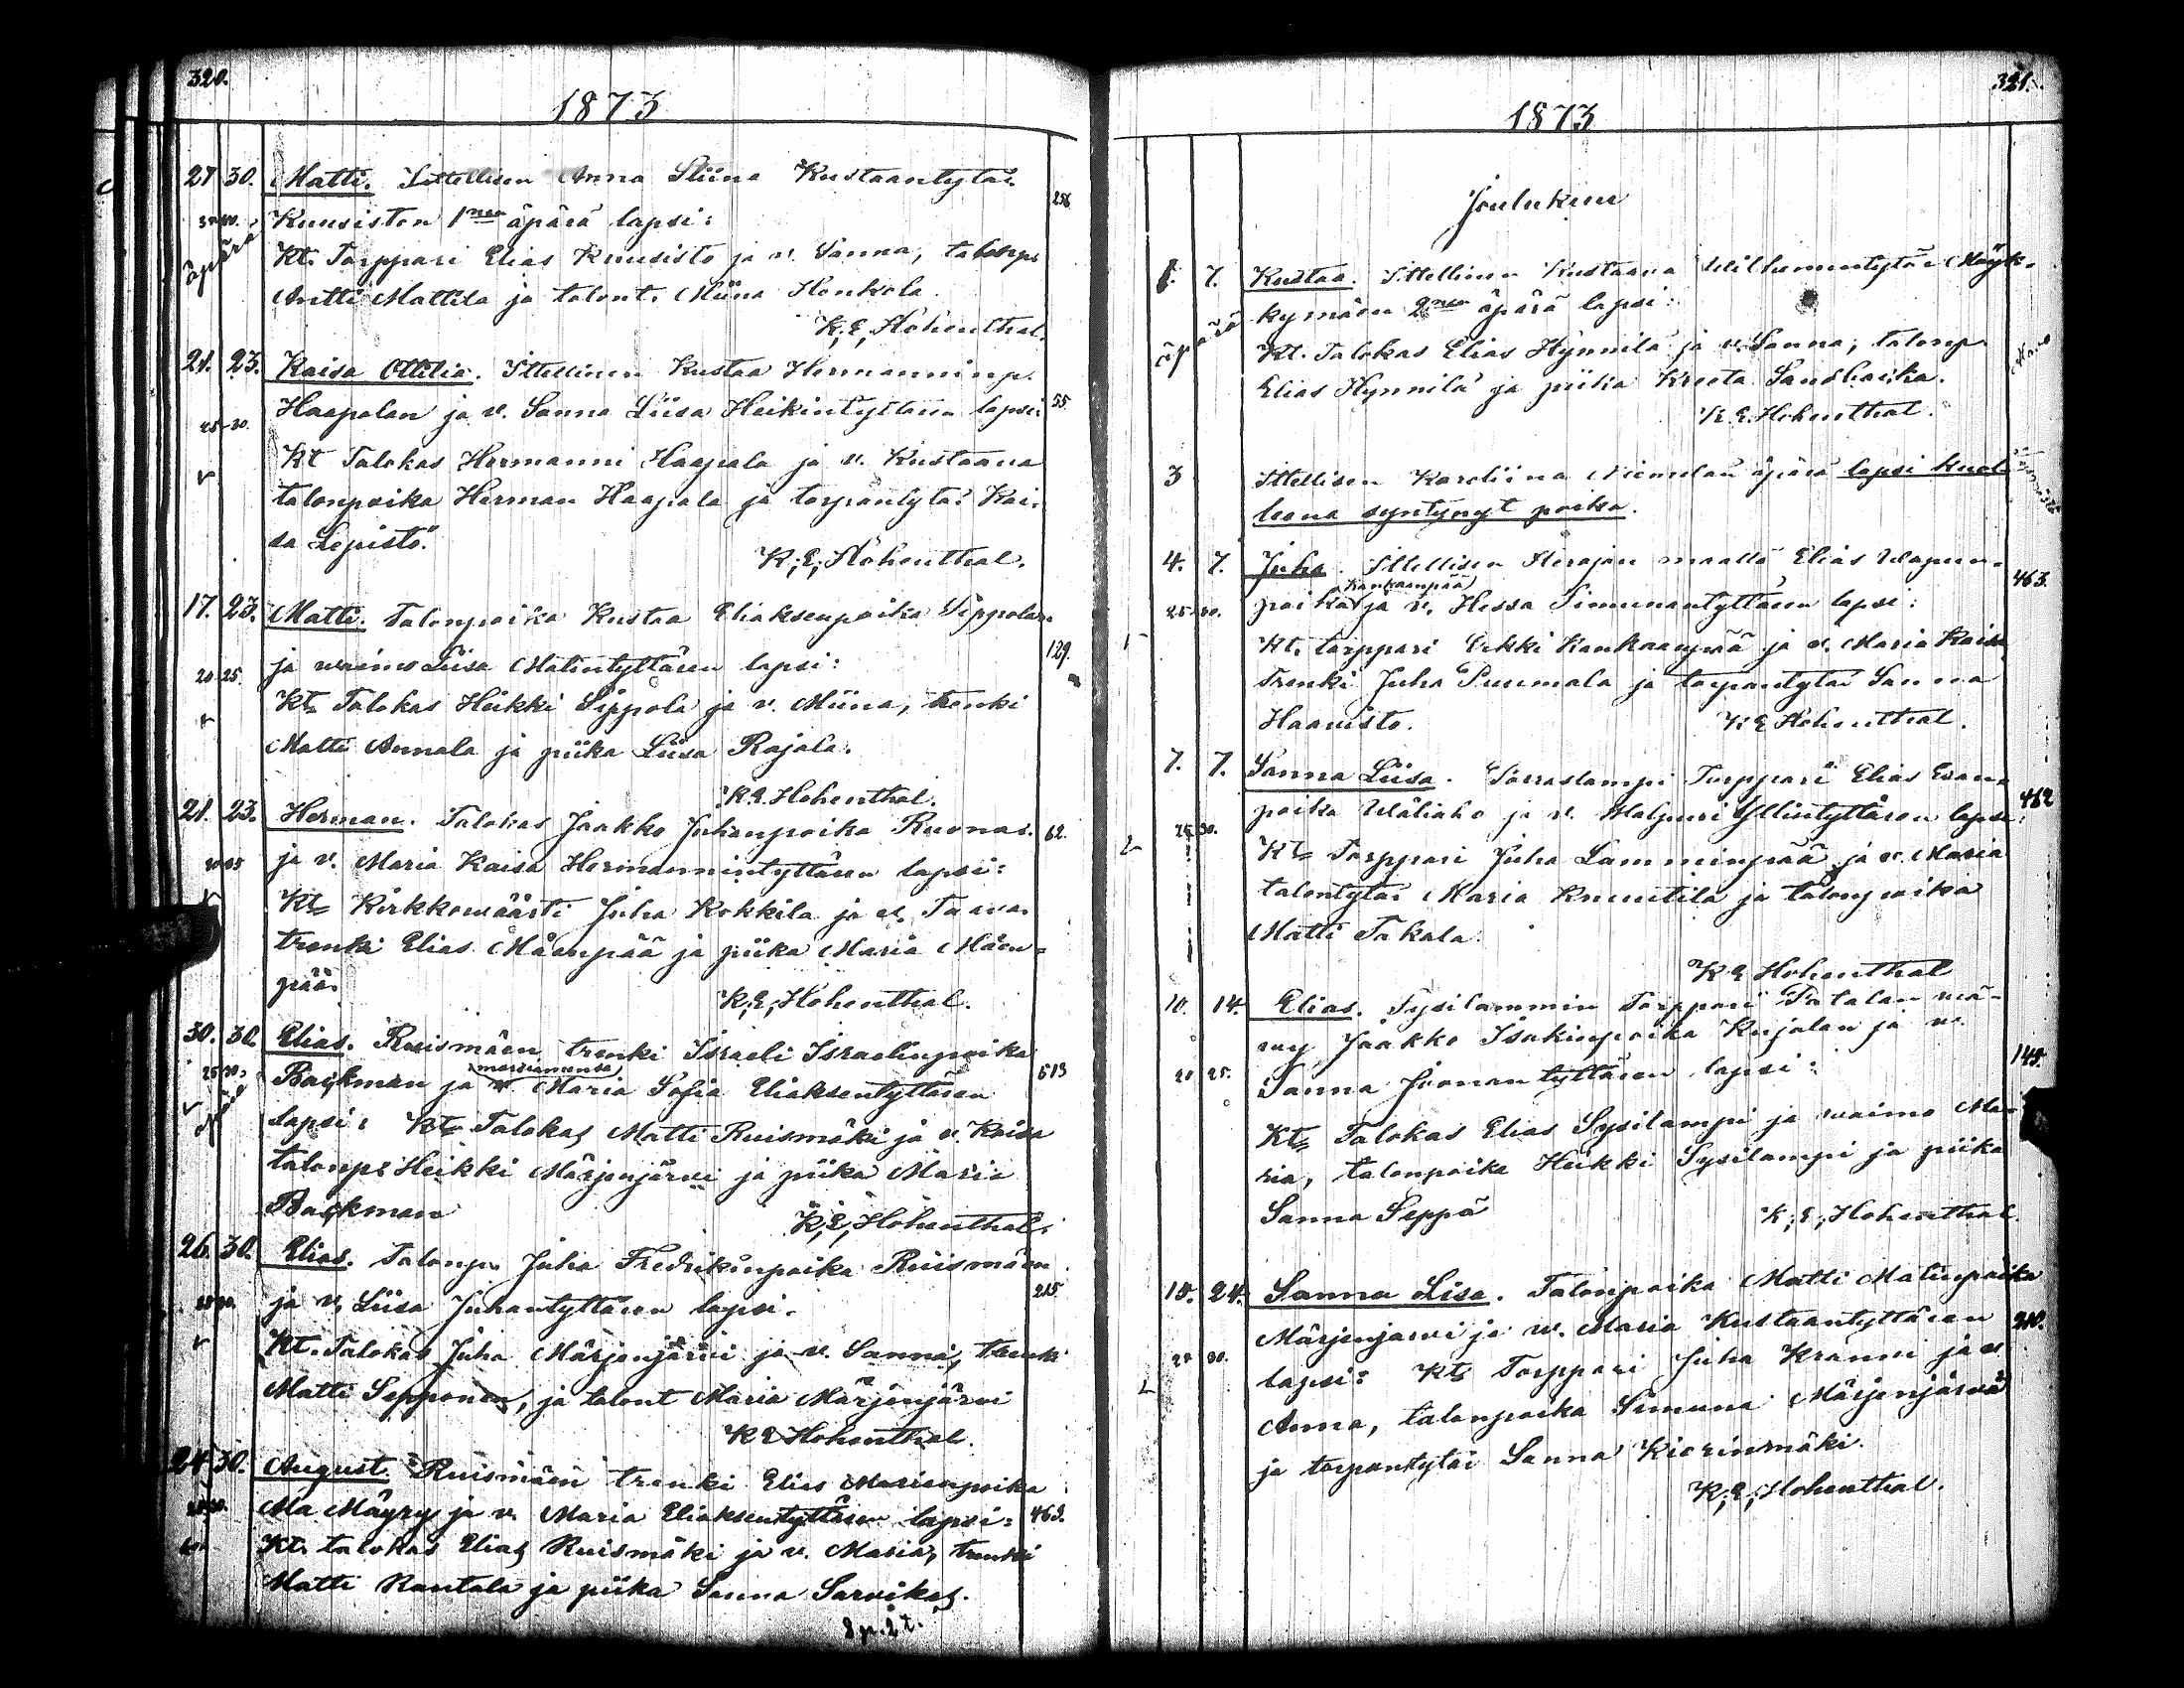 320.
1873
27 30. Matti. Ittellisen Anna Stiina Kustaantytär
Kuusiston 1nen äpärä lapsi: 256
äpärä Kt. Torppari Elias Kuusisto ja v. Sanna, talonp.
Antti Mattila ja talont. Miina Honkola.
K, E, Hohenthal.
21. 23. Kaisa Ottilia. Ittellinen Kustaa Hermanninp.
Haapalan ja v. Sanna Liisa Heikintyttären lapsi: 55
25-30.
Kt Talokas Hermanni Haapala ja v. Kustaava
talonpoika Herman Haapala ja torpantytär Kai-
sa Lepistö.
K, E, Hohenthal.
17. 23. Matti. Talonpoika Kustaa Eliaksenpoika Sippolan
ja waimo Liisa Matintyttären lapsi: 129.
20 25.
Kt= Talokas Heikki Sippola ja v. Miina, trenki
Matti Annala ja piika Liisa Rajala.
K. E. Hohenthal.
21. 23. Herman. Talokas Jaakko Juhanpoika Ruonas. 62.
ja v. Maria Kaisa Hermannintyttären lapsi:
Kt= Kirkkowäärti Juha Kokkila ja v.
trenki Elias Mäenpää ja piika Maria Mäen-
pää.
K, E, Hohenthal.
30. 30. Elias. Ruismäen trenki Israeli Israelinpoika
Backman ja v. Maria Sofia Eliaksentyttären 513
lapsi: Kt= Talokas Matti Ruismäki ja v. Kaisa
talonp: Heikki Märjenjärvi ja piika Maria
Backman
K, E, Hohenthal.
26. 30. Elias. Talonp. Juha Fredrikinpoika Ruismäen
ja v. Liisa Juhantyttären lapsi. 215
Kt. Talokas Juha Märjenjärvi ja v. Sanna, trenki
Matti Sepponen, ja talont Maria Märjenjärvi
K E Hohenthal.
24 30. August. Ruismäen trenki Elias
Mäyry ja v. Maria Eliaksentyttären lapsi: 463.
Kt. talokas Elias Ruismäki ja v. Maria, trenki
Matti Rantala ja piika Sanna Sarvikas.
8 p. 2 t.
321.
1873
Joulukuu
1. 7. Kustaa. Ittellinen Kustaava Willhemintytär Mäyk-
kymäen 2nen äpärä lapsi:
äpärä Kt. Talokas Elias Hynnilä ja v. Sanna, talonp.
Elias Hynnilä ja piika Kreeta Sandbacka.
K. E. Hohenthal.
3 Ittellisen Karoliina Niemelän äpärä lapsi kuol-
leena syntynyt poika.
4. 7. Juha. Ittellisen maalta Elias 463.
Kankaanpää
25 30. poika ja v. Hessa Simunantyttären lapsi:
Kt. torppari Erkki Kankaanpää ja v. Maria Kaisa
Trenki Juha Puumala ja torpantytär Sanna
Haavisto. K. E Hohenthal.
7. 7. Sanna Liisa. Torppari Elias
poika Wäliaho ja v. Walpuri Yllintyttären lapsi: 462
25 30.
Kt= Torppari Juha Lamminpää ja v. Maria
talontytär Maria Knuutila ja talonpoika
Matti Takala.
K E Hohenthal
10. 14. Elias. Sysilammin Torppari Talalan wä-
wy Jaakko Isakinpoika Rujalan ja w.
20 25. Sanna Joonantyttären lapsi: 145.
Kt= Talokas Elias Sysilampi ja waimo Ma-
ria, talonpoika Heikki Sysilampi ja piika
Sanna Seppä K, E, Hohenthal.
18. 24. Sanna Lisa. Talonpoika Matti Matinpoika
Märjenjärvi ja w. Maria Kustaantyttären 210.
25 30. lapsi: Kt= Torppari Juha Kranni ja v.
Anna, talonpoika Simuna Märjenjärvi
ja torpantytär Sanna Kiorinmäki.
K, E, Hohenthal.